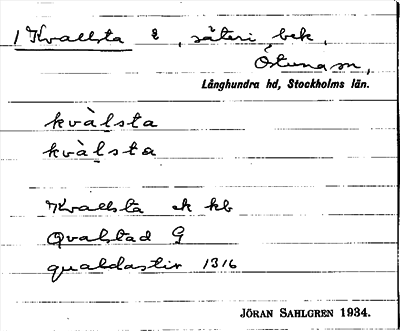 1 Kvallsta 2, säteri bek.
Östuna sn,
Långhundra hd, Stockholms län.
kvàlsta
kvàlsta
Kvallsta ek kb
Qvalstad G
qualdastir 1316
JÖRAN SAHLGREN 1934.